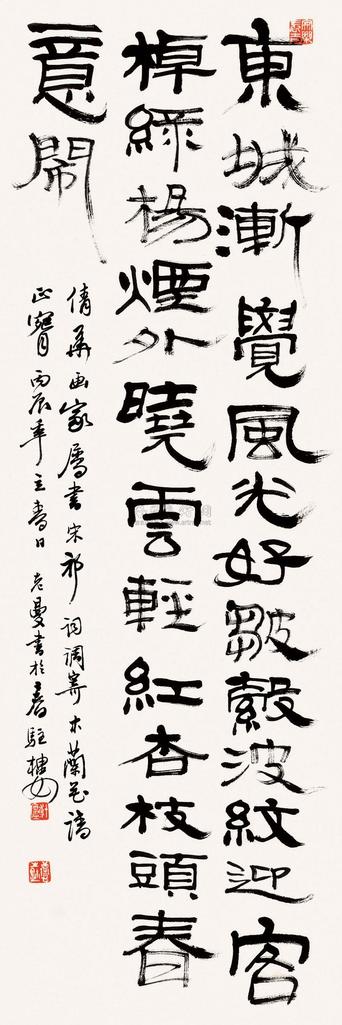 東城漸覺風光好皺縠波紋迎客
棹綠楊煙外曉雲輕紅杏枝頭春
意鬧
倩華画家屬書宋祁词調寄木蘭花請
正 丙辰年立春日 老曼書於春駐樓